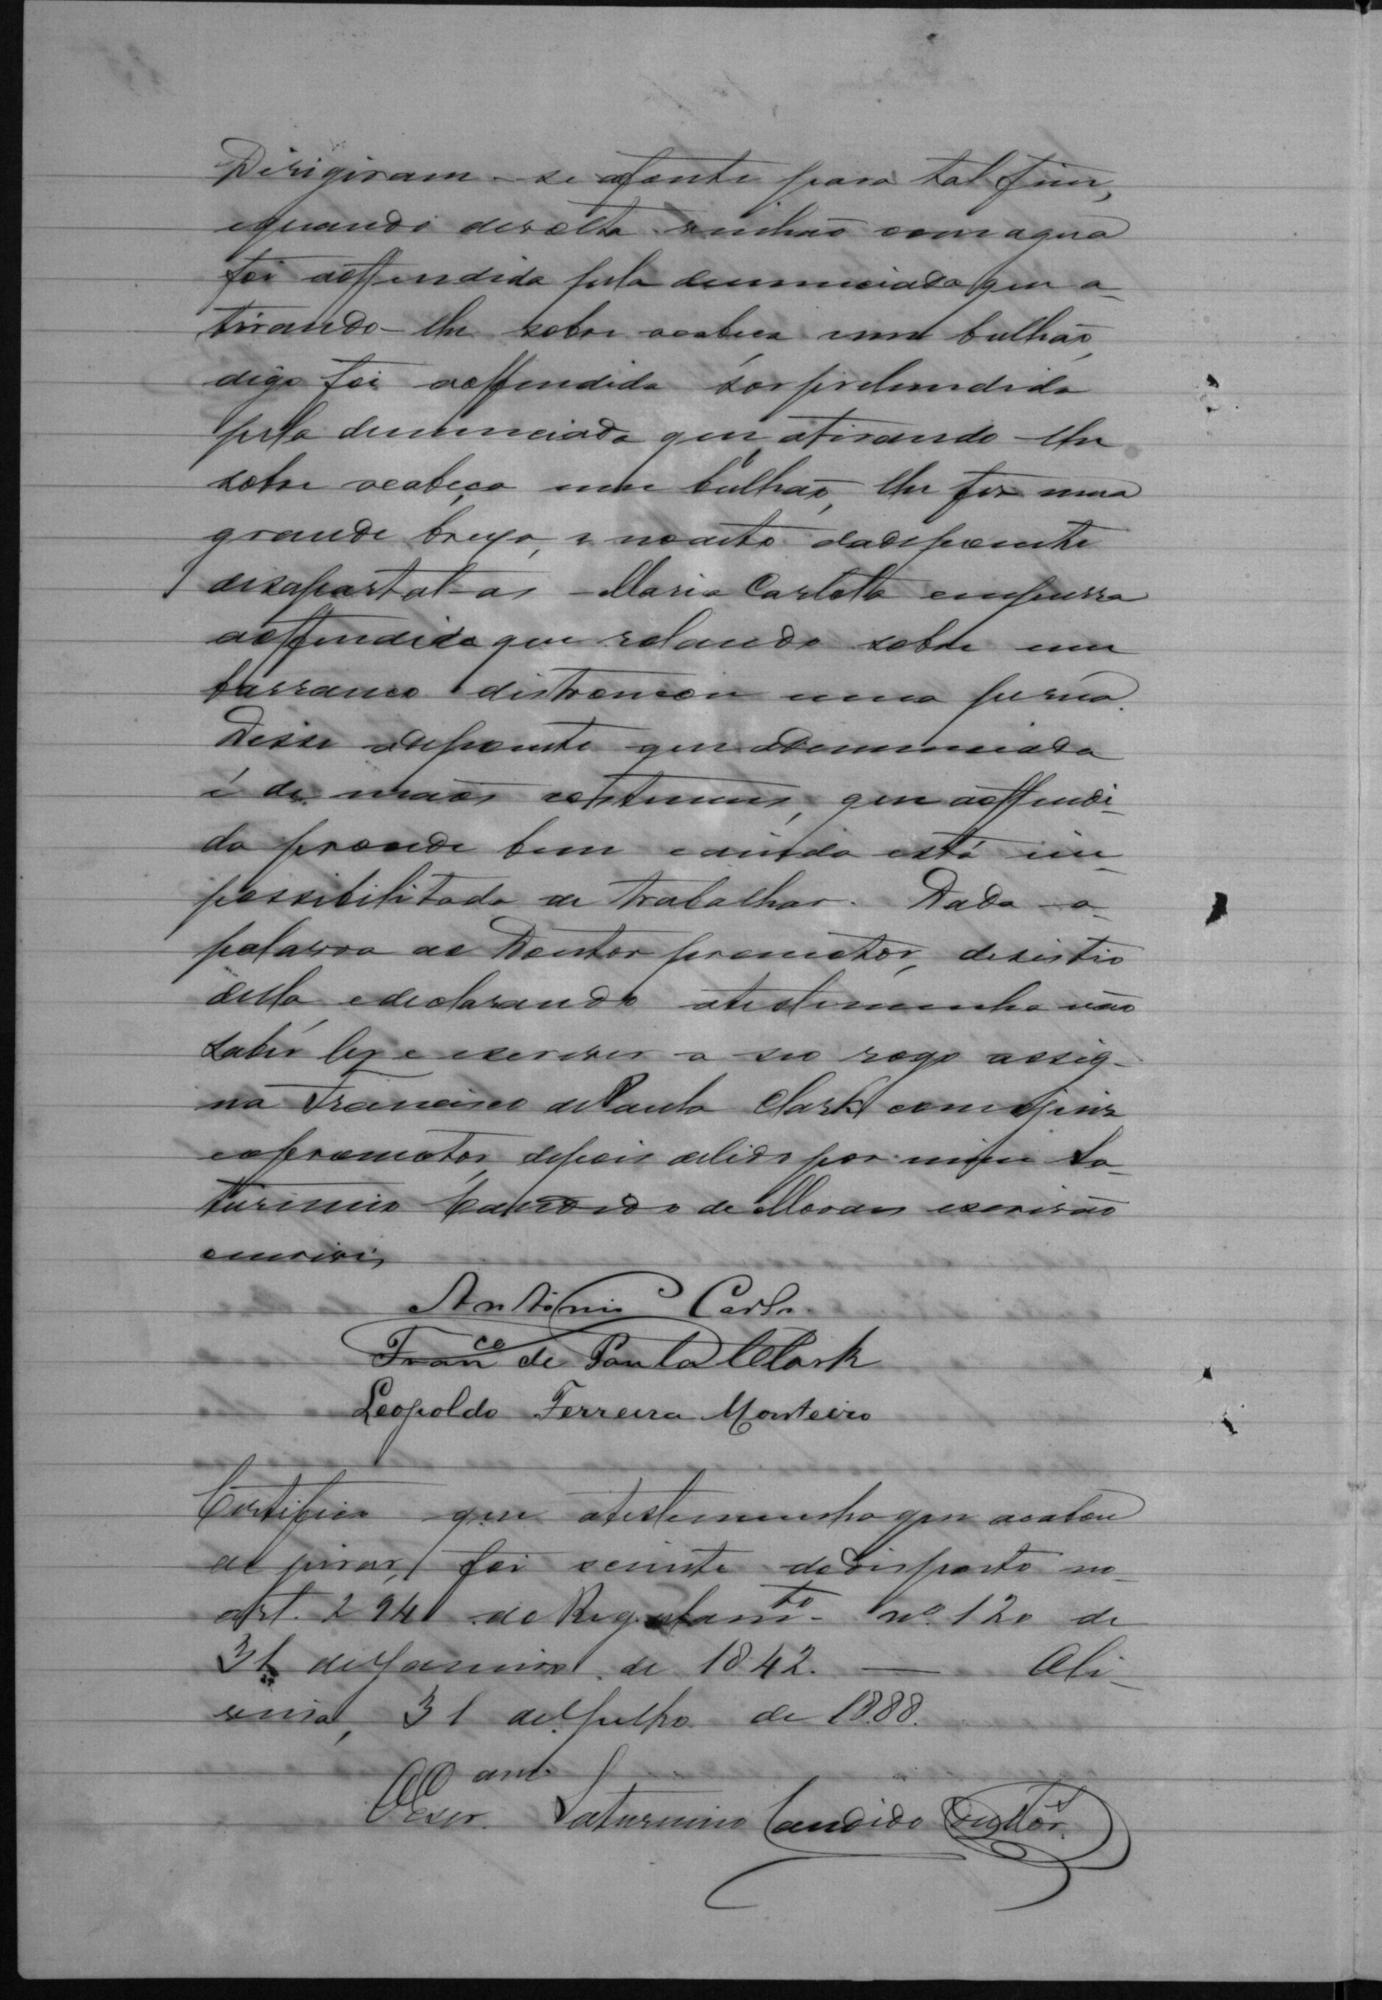 Dirigiram-se afonte para tal fim,
equando devolta vinhão com agua
foi aoffendida pela denunciada que a-
tirando-lhe sobre acabeça um bulhão,
digo foi aoffendida sorprehendida
pela denunciada que, atirando-lhe
sobre acabeça um bulhão, lhe fez uma
grande brexa, e noacto dadepoente
desapartal-as Maria Carlota empurra
aoffendida que rolando sobre um
barranco distroncou uma perna.
Disse adepoente que adenunciada
é de máos costumes, que aoffendi-
da procede bem eainda está im-
possibilitada de trabalhar. Dada a
palavra ao Doutor promotor, desistio
della, edeclarando atestemunha não
saber ler e escrever a seo rogo assig-
na Francisco de Paula Clark com ojuiz
eopromotor, depois delido por mim Sa-
turnino Candido de Moraes escrivão
escrivi,
Antonio Carlo
Franco de Paula Clark
Leopoldo Ferreira Monteiro
Certifico que atestemunha que acabou
de jurar, foi sciente dodisposto no
art. 294 do Regulamto nº 120 de
31 deJaneiro de 1842. — Oli-
veira, 31 de Julho de 1888.
Saturnino Candido